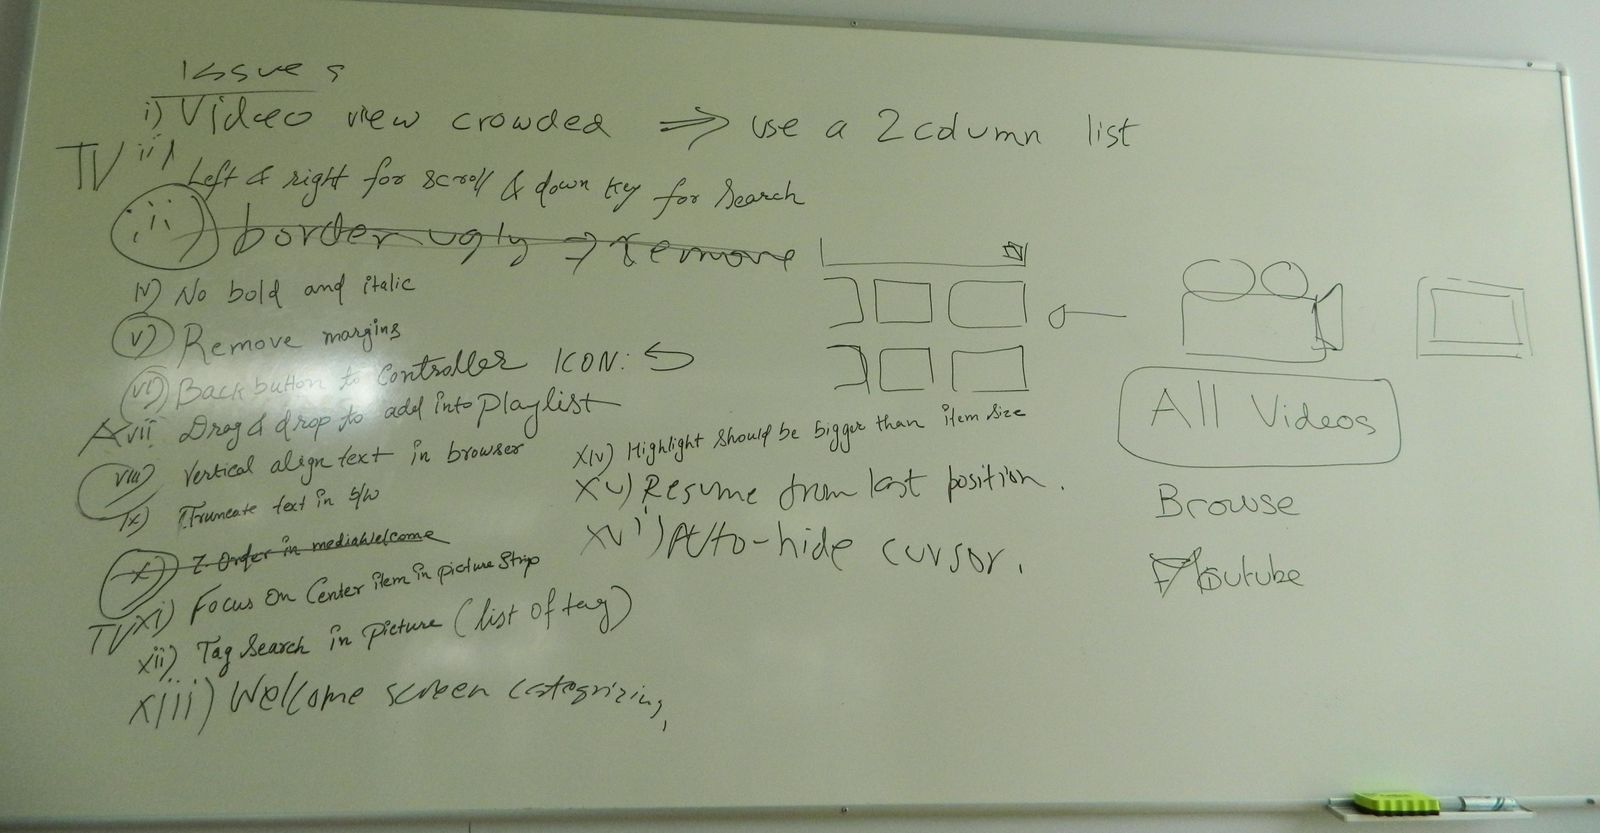 Issues
i) Video view crowded ⇒ use a 2 column list
TV ii) Left & right for scroll & down key for search
iii) border ugly → remove
iv) No bold and italic
v) Remove margins
vi) Back button to Controller ICON:
vii Drag & drop to add into playlist
viii) Vertical align text in browser
ix) Truncate text in S/W
x) Z-Order in mediaWelcome
TV xi) Focus on Center item in picture strip
xii) Tag Search in picture (list of tag)
xiii) Welcome screen categorizing,
xiv) Highlight should be bigger than item size
xv) Resume from last position.
xvi) Auto-hide cursor.
All Videos
Browse
Youtube